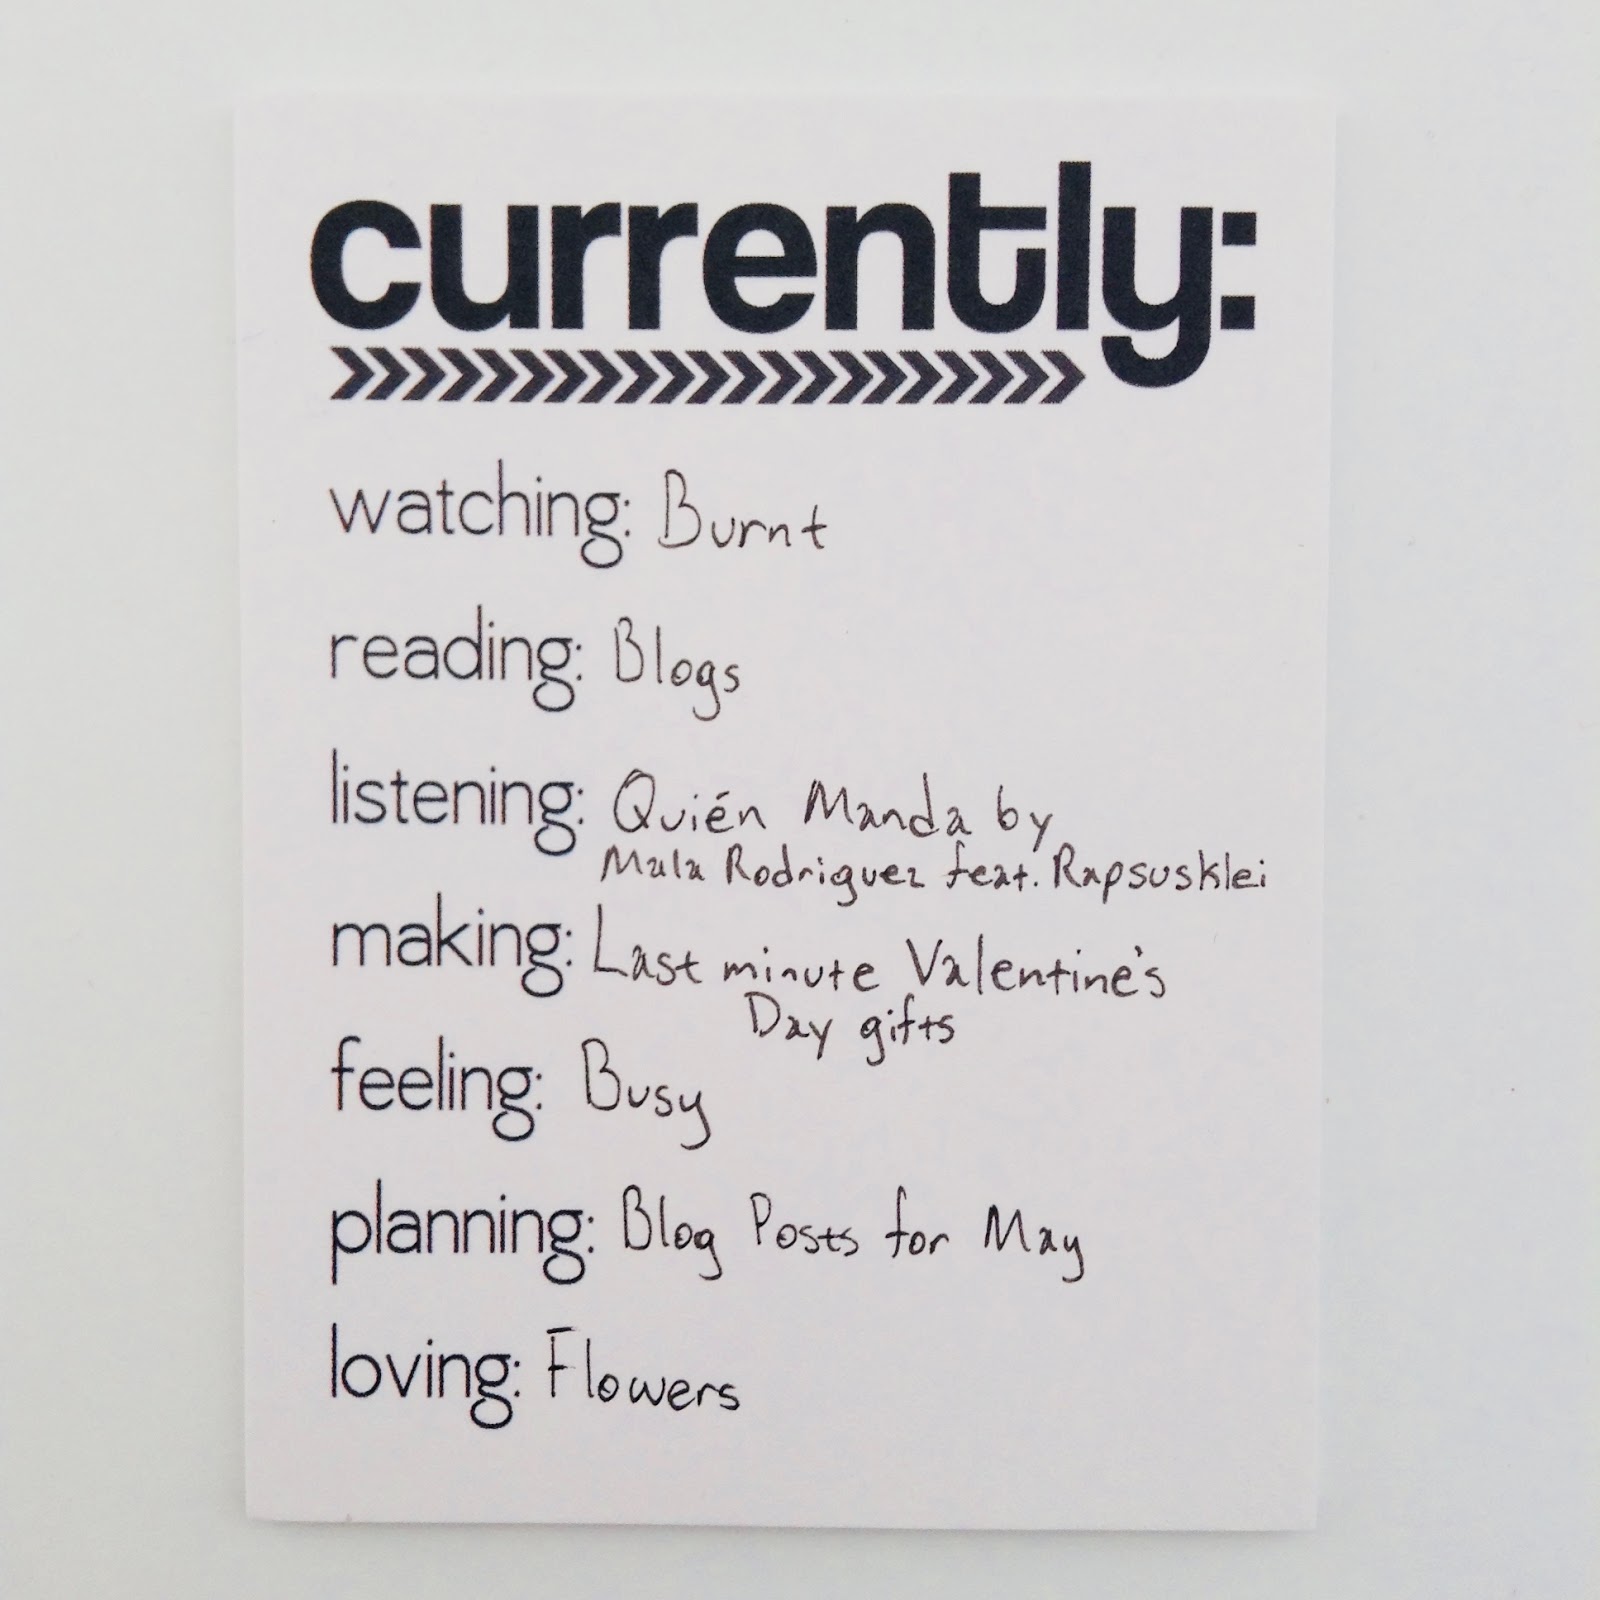 currently:
watching: Burnt
reading: Blogs
listening: Quién Manda by
Mala Rodriguez feat. Rapsusklei
making: Last minute Valentine's
Day gifts
feeling: Busy
planning: Blog Posts for May
loving: Flowers